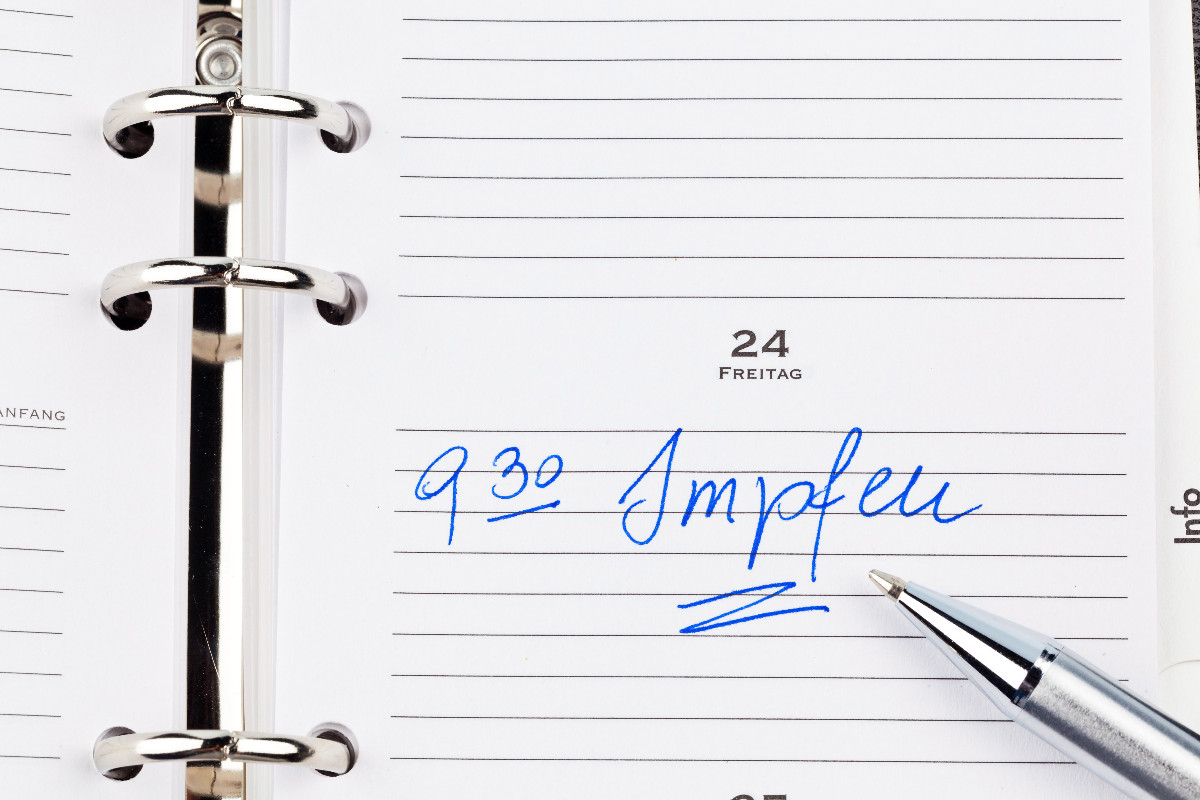 24
FREITAG
ANFANG
9 30 Impfen
Info